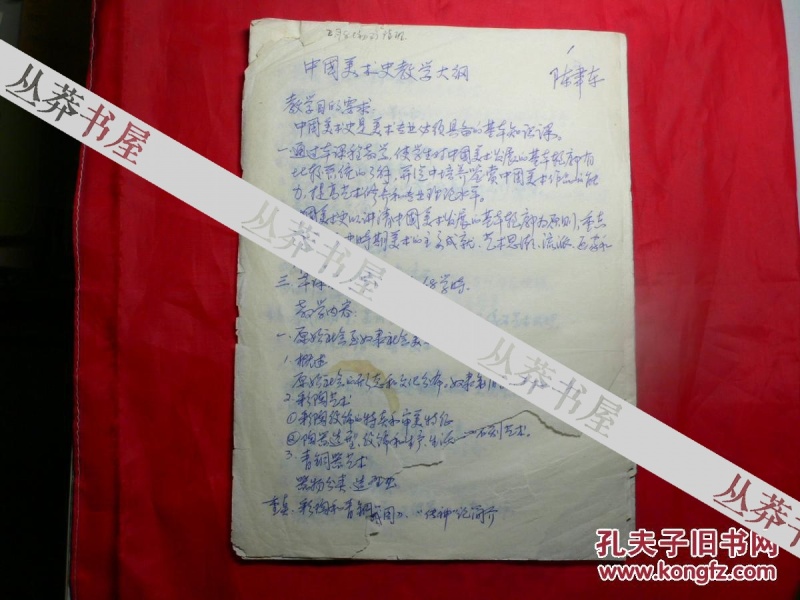 中国美术史教学大纲
教学目的要求:
中国美术史是美术专业必须具备的基本知识课。
一 通过本课程教学,使学生对中国美术发展的基本轮廓有
比较系统的了解,并从中培养鉴赏中国美术作品的能
力,提高艺术修养和专业理论水平。
国美术史以讲清中国美术发展的基本轮廓为原则,重点
时期美术的主要成就、艺术思潮、流派
三 本课 68学时.
教学内容:
一. 原始社会至奴隶社会美
1. 概述
原始社会的形态和文化分布,奴隶制
2. 彩陶艺术
①彩陶纹饰的特点和审美特征
②陶器造型、纹饰和生产生活 石刻艺术。
3. 青铜器艺术
器物分类、造型
重点: 彩陶和青铜 "传神"论简介
丛莽书屋
丛莽书屋
丛莽书屋
丛莽书屋
丛莽书屋
孔夫子旧书网
www.kongfz.com